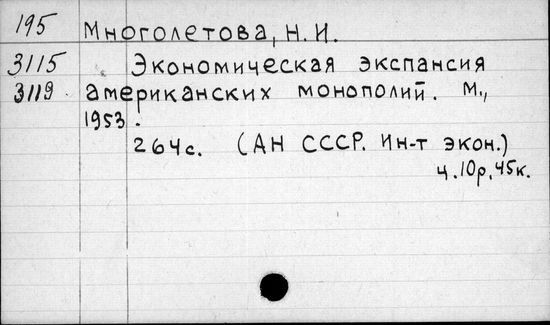 195 Многолетова, Н. И.
3115 Экономическая экспансия
3119 американских монополий. М.,
1953.
264с. (АН СССР. Ин-т экон.)
ц. 10р. 45к.